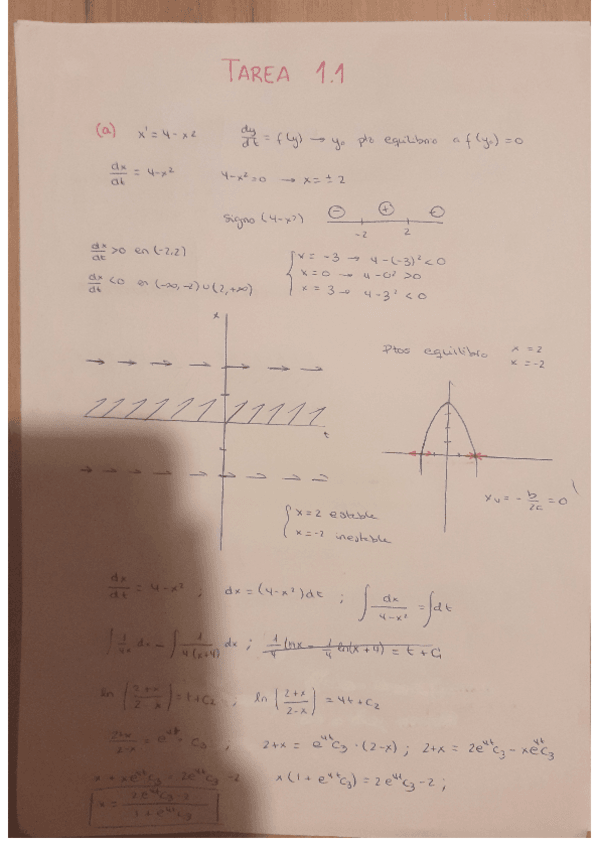 TAREA 1.1
(a) x' = 4-x² dy/dt = f(y) → y₀ pto equilibrio a f(y₀)=0
dx/dt = 4-x² 4-x²=0 → x=±2
signo (4-x²) - + -
-2 2
dx/dt >0 en (-2,2)
dx/dt <0 en (-∞,-2)∪(2,+∞)
x = -3 → 4-(-3)²<0
x=0 → 4-0² >0
x = 3 → 4-3² <0
x
Ptos equilibrio x=2
x=-2
t
xᵥ = -b/2a = 0
x=2 estable
x=-2 inestable
dx/dt = 4-x² ; dx=(4-x²)dt ; ∫ dx/4-x² = ∫dt
dx ; = t + C₁
ln |2+x/2-x| = t+C₂ ; ln |2+x/2-x| = 4t+C₂
2+x/2-x = e⁴ᵗ · C₃ ; 2+x = e⁴ᵗC₃ · (2-x) ; 2+x = 2e⁴ᵗC₃ - xe⁴ᵗC₃
x + xe⁴ᵗC₃ = 2e⁴ᵗC₃ -2 x(1+e⁴ᵗC₃) = 2e⁴ᵗC₃-2 ;
x = 2e⁴ᵗC₃-2/1+e⁴ᵗC₃